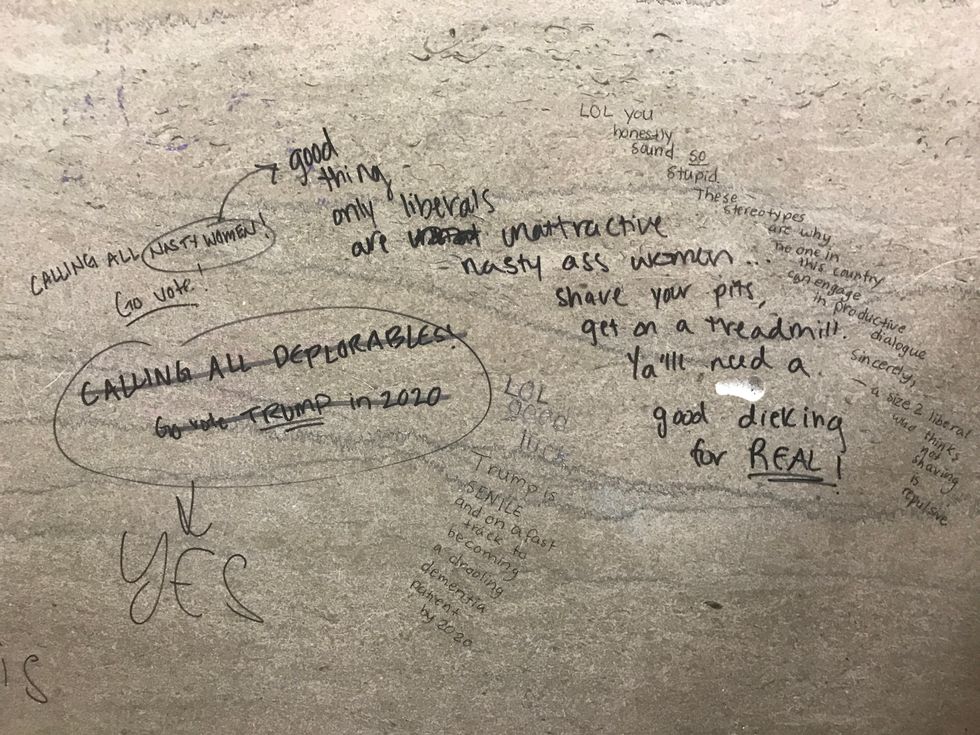 CALLING ALL NASTY WOMEN!
Go vote!
good
thing
only liberals
are unattractive
nasty ass women...
shave your pits,
get on a treadmill.
Ya'll need a
good dicking
for REAL!
LOL you
honestly
sound so
stupid
These
stereotypes
are why
no one in
this country
can engage
in productive
dialogue
Sincerely,
- a size 2 liberal
who thinks
not
shaving
is
repulsive
CALLING ALL DEPLORABLES!
Go vote TRUMP in 2020
YES
LOL
good
luck
Trump is
SENILE
and on a fast
track to
becoming
a drooling
dementia
patient
by 2020
is